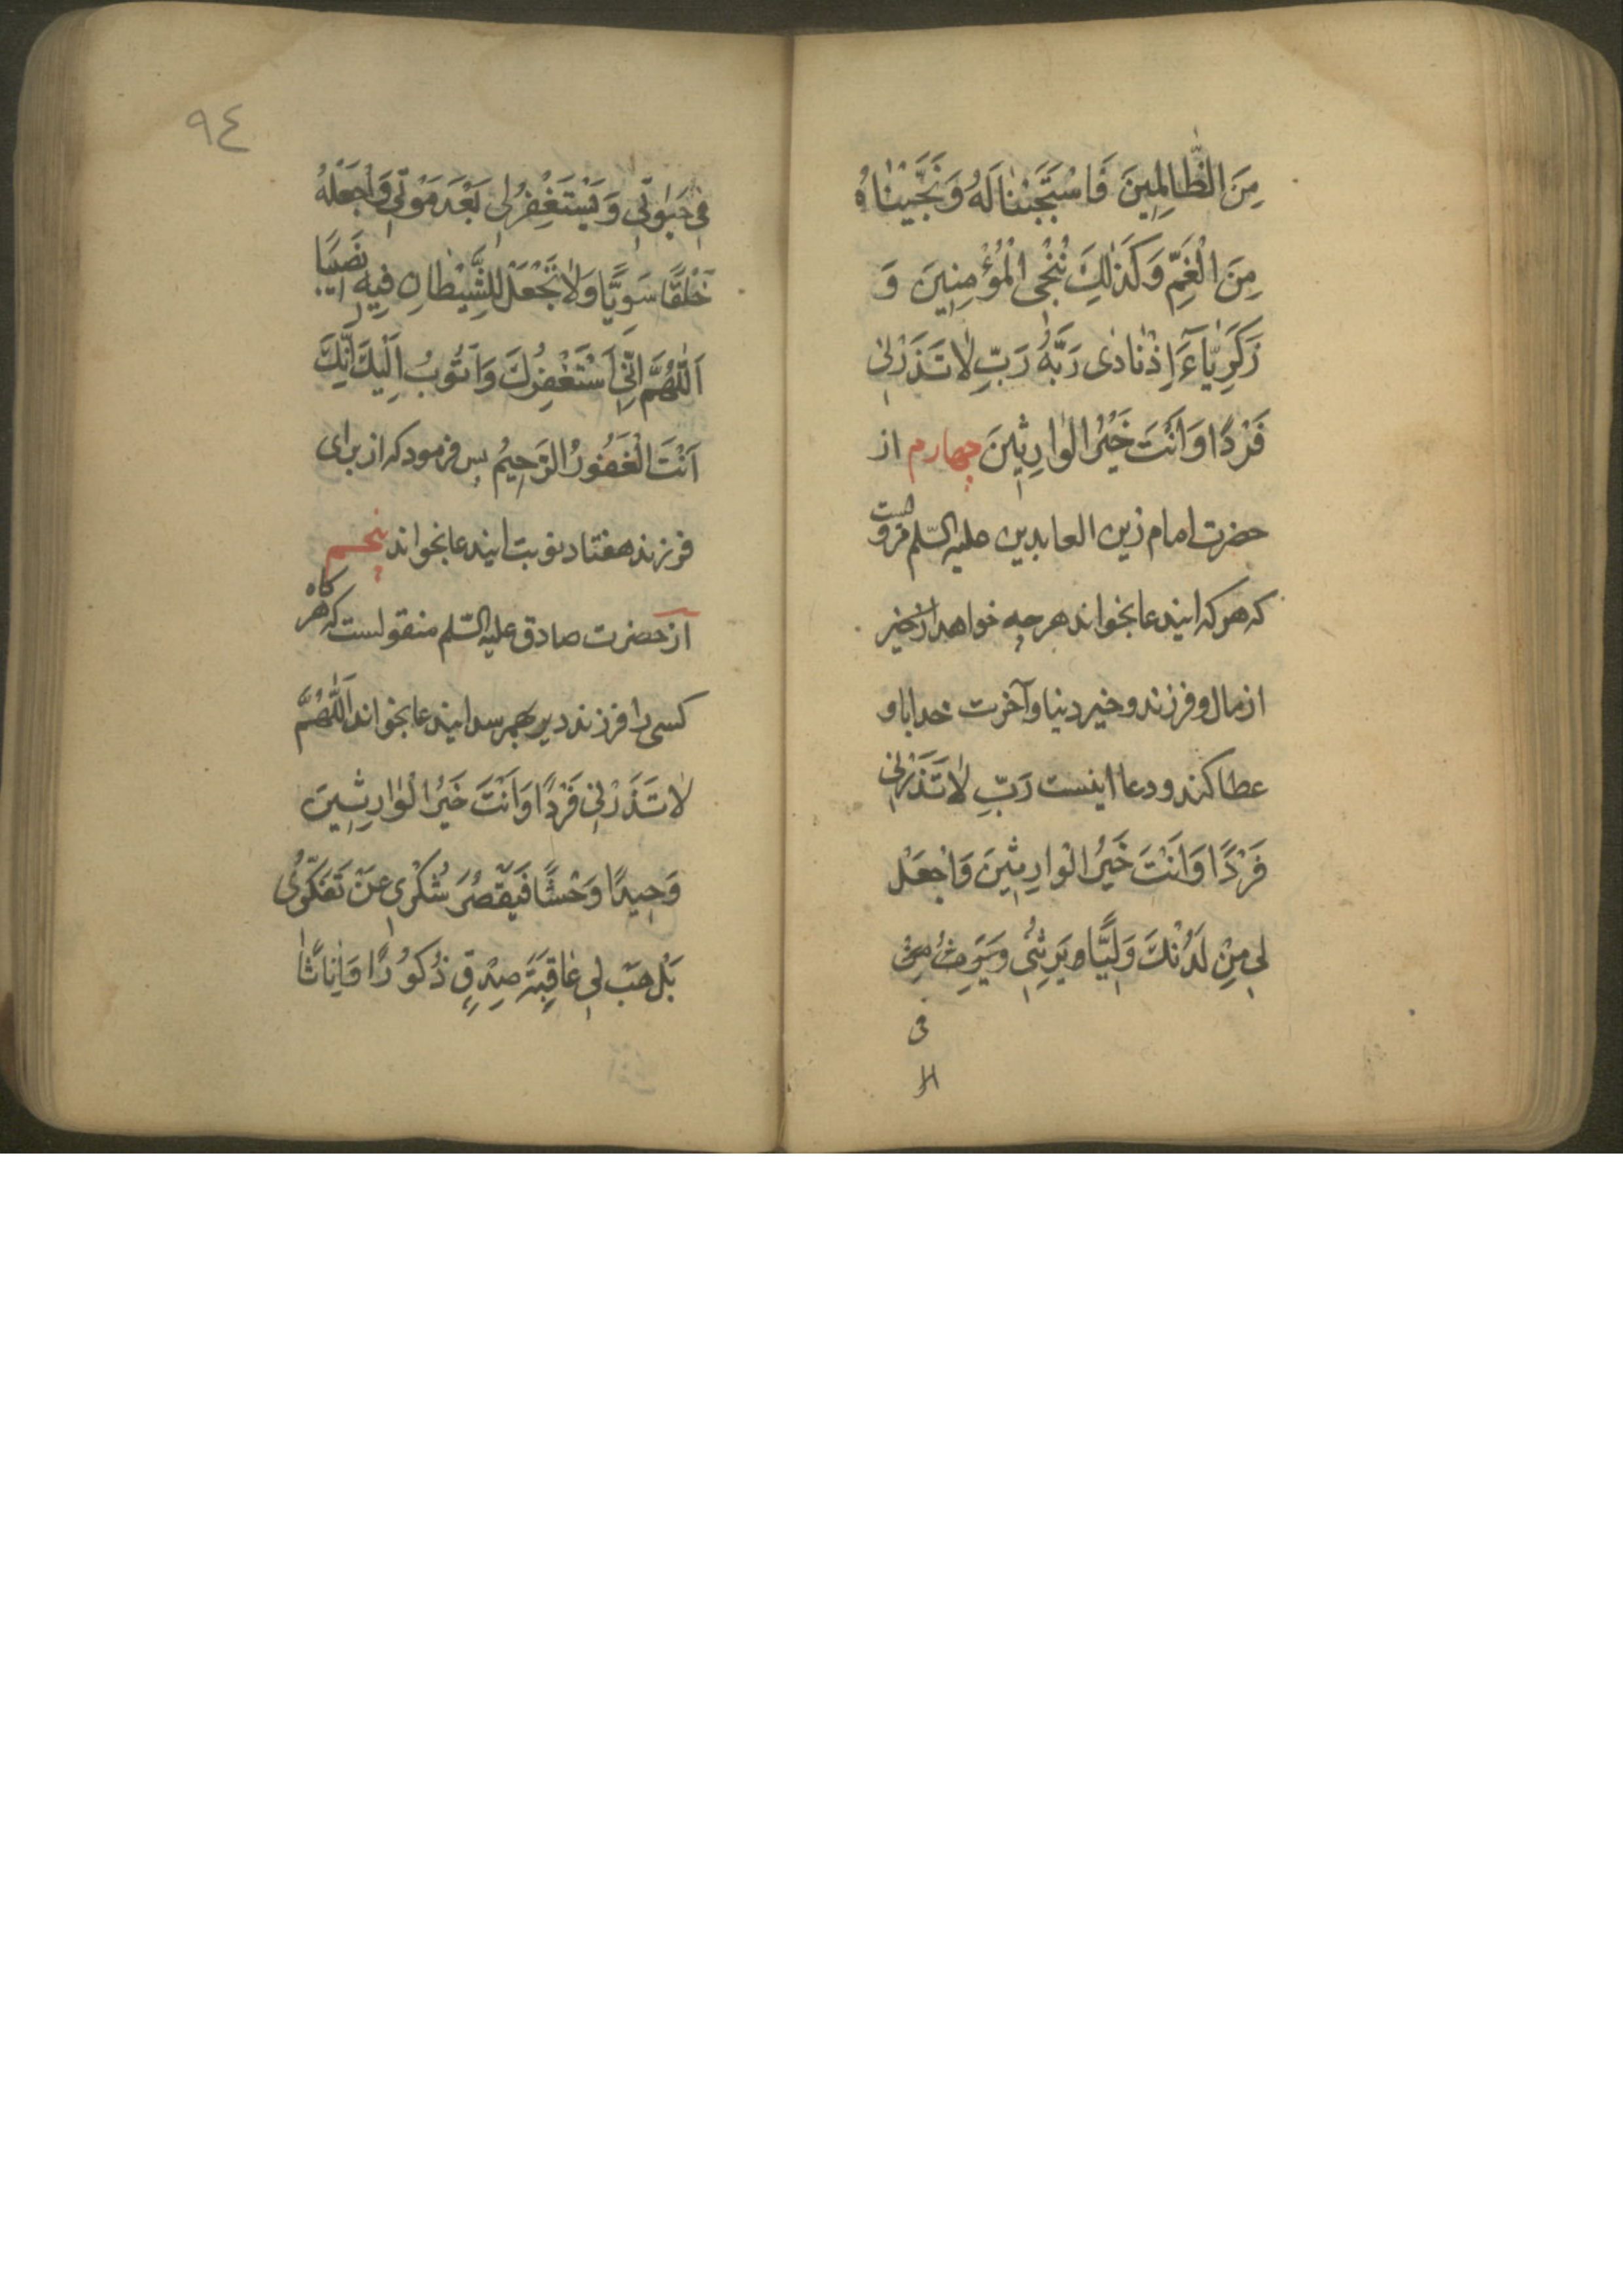 مِنَ الظَّالِمِينَ فَاسْتَجَبْنَا لَهُ وَنَجَّيْنَاهُ
مِنَ الْغَمِّ وَكَذٰلِكَ نُنْجِي الْمُؤْمِنِينَ وَ
زَكَرِيَّآءَ اِذْ نَادٰى رَبَّهُ رَبِّ لَا تَذَرْنِي
فَرْدًا وَاَنْتَ خَيْرُ الْوَارِثِينَ چهارم از
حضرت امام زین العابدین علیه السّلم مرویست
که هر که ایندعا بخواند هر چه خواهد از خیر
از مال و فرزند و خیر دنیا و آخرت خدا باو
عطا کند و دعا اینست رَبِّ لَا تَذَرْنِي
فَرْدًا وَاَنْتَ خَيْرُ الْوَارِثِينَ وَاجْعَلْ
لِي مِنْ لَدُنْكَ وَلِيًّا يَرِثُنِي
فی
٩٤
فِي حَيٰوتِي وَيَسْتَغْفِرُ لِي بَعْدَ مَوْتِي وَاجْعَلْهُ
خَلْقًا سَوِيًّا وَلَا تَجْعَلْ لِلشَّيْطَانِ فِيهِ نَصِيبًا
اَللّٰهُمَّ اِنِّي اَسْتَغْفِرُكَ وَاَتُوبُ اِلَيْكَ اِنَّكَ
اَنْتَ الْغَفُورُ الرَّحِيمُ پس فرمود که از برای
فرزند هفتاد نوبت ایندعا بخواند پنجم
از حضرت صادق علیه السّلم منقولست که هر گاه
کسی را فرزند دیر بهمرسد ایندعا بخواند اَللّٰهُمَّ
لَا تَذَرْنِي فَرْدًا وَاَنْتَ خَيْرُ الْوَارِثِينَ
وَحِيدًا وَحْشًا فَيَقْصُرَ شُكْرِي عَنْ تَفَكُّرِي
بَلْ هَبْ لِي عَاقِبَةَ صِدْقٍ ذُكُورًا وَاِنَاثًا